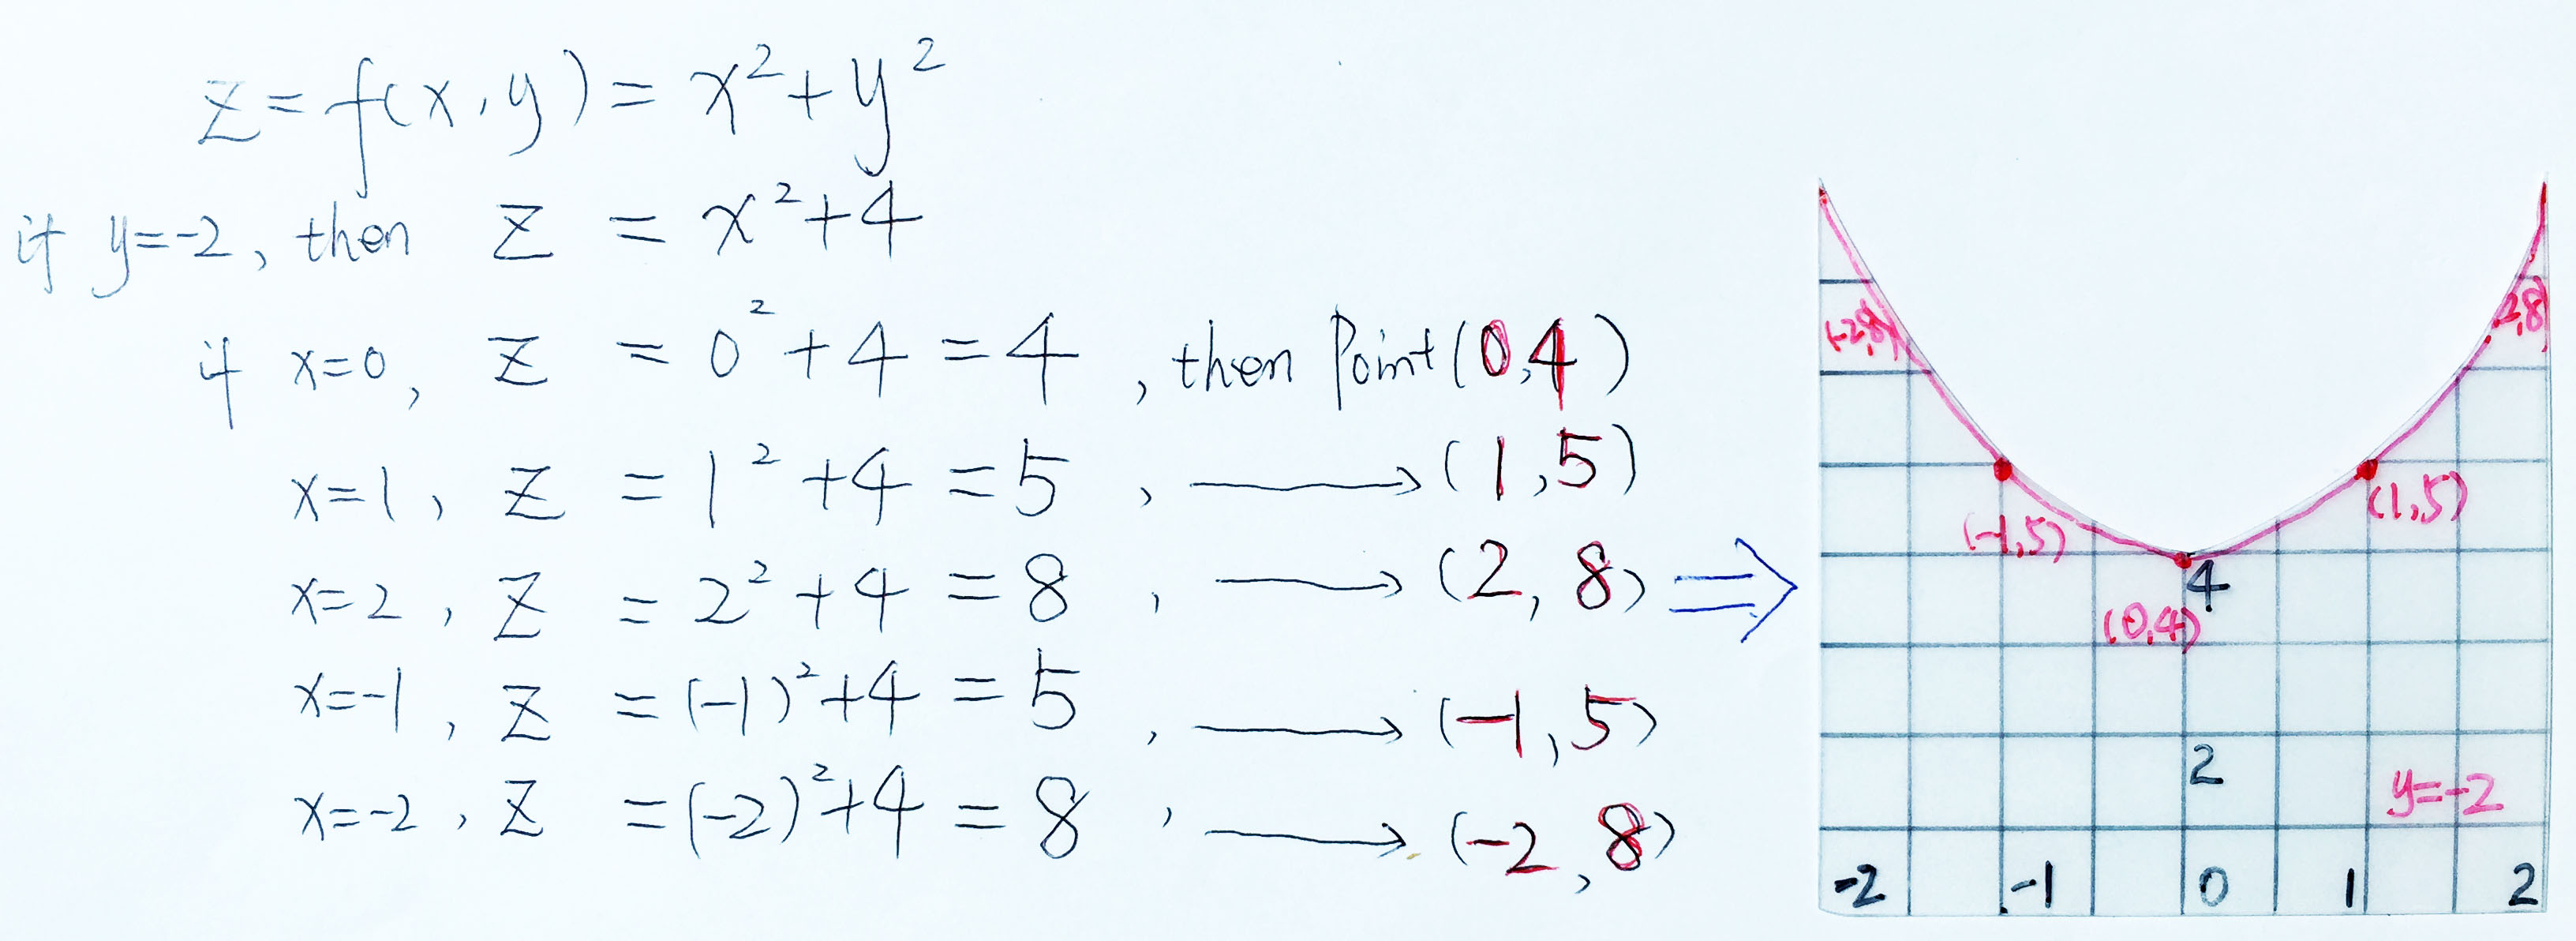 z = f(x, y) = x² + y²
if y=-2, then z = x² + 4
if x=0, z = 0² + 4 = 4, then Point (0,4)
x=1, z = 1² + 4 = 5, → (1,5)
x=2, z = 2² + 4 = 8, → (2,8) ⇒
x=-1, z = (-1)² + 4 = 5, → (-1,5)
x=-2, z = (-2)² + 4 = 8, → (-2,8)
(-2,8)
2,8)
(-1,5)
(1,5)
4
(0,4)
2
y=-2
-2 -1 0 1 2